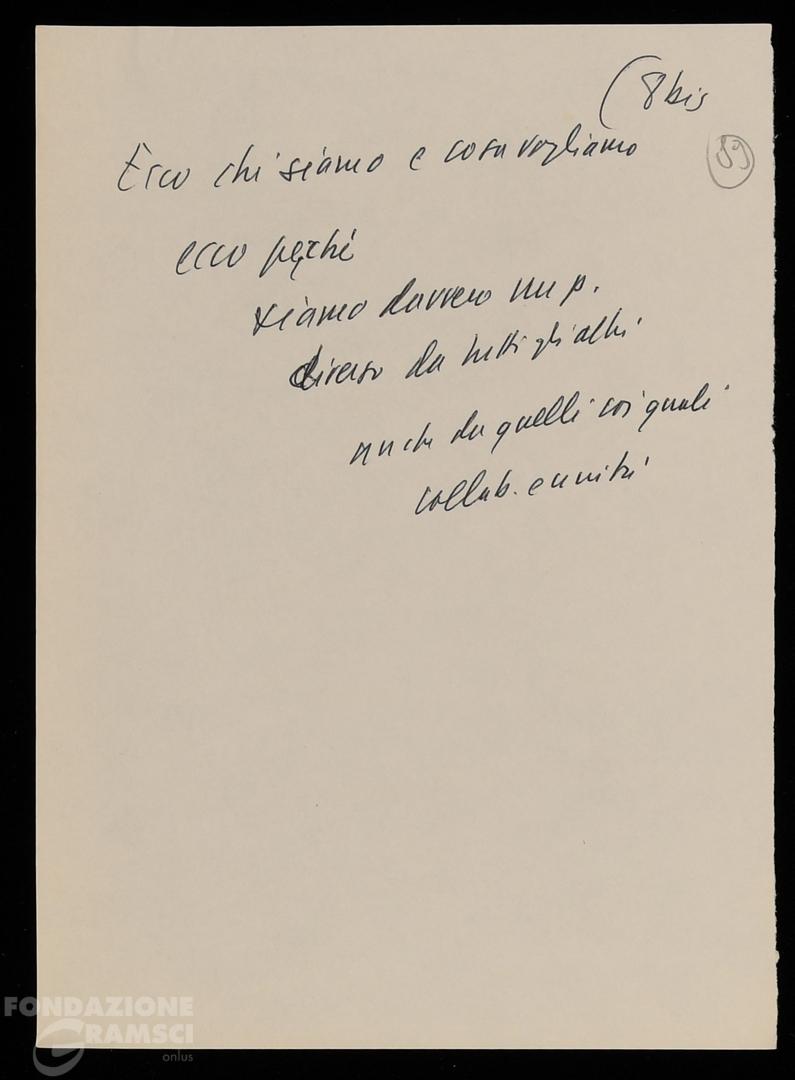 (8 bis
89
Ecco chi siamo e cosa vogliamo
ecco perché
siamo davvero un p.
diverso da tutti gli altri
anche da quelli coi quali
collab. e unità
FONDAZIONE
GRAMSCI
onlus